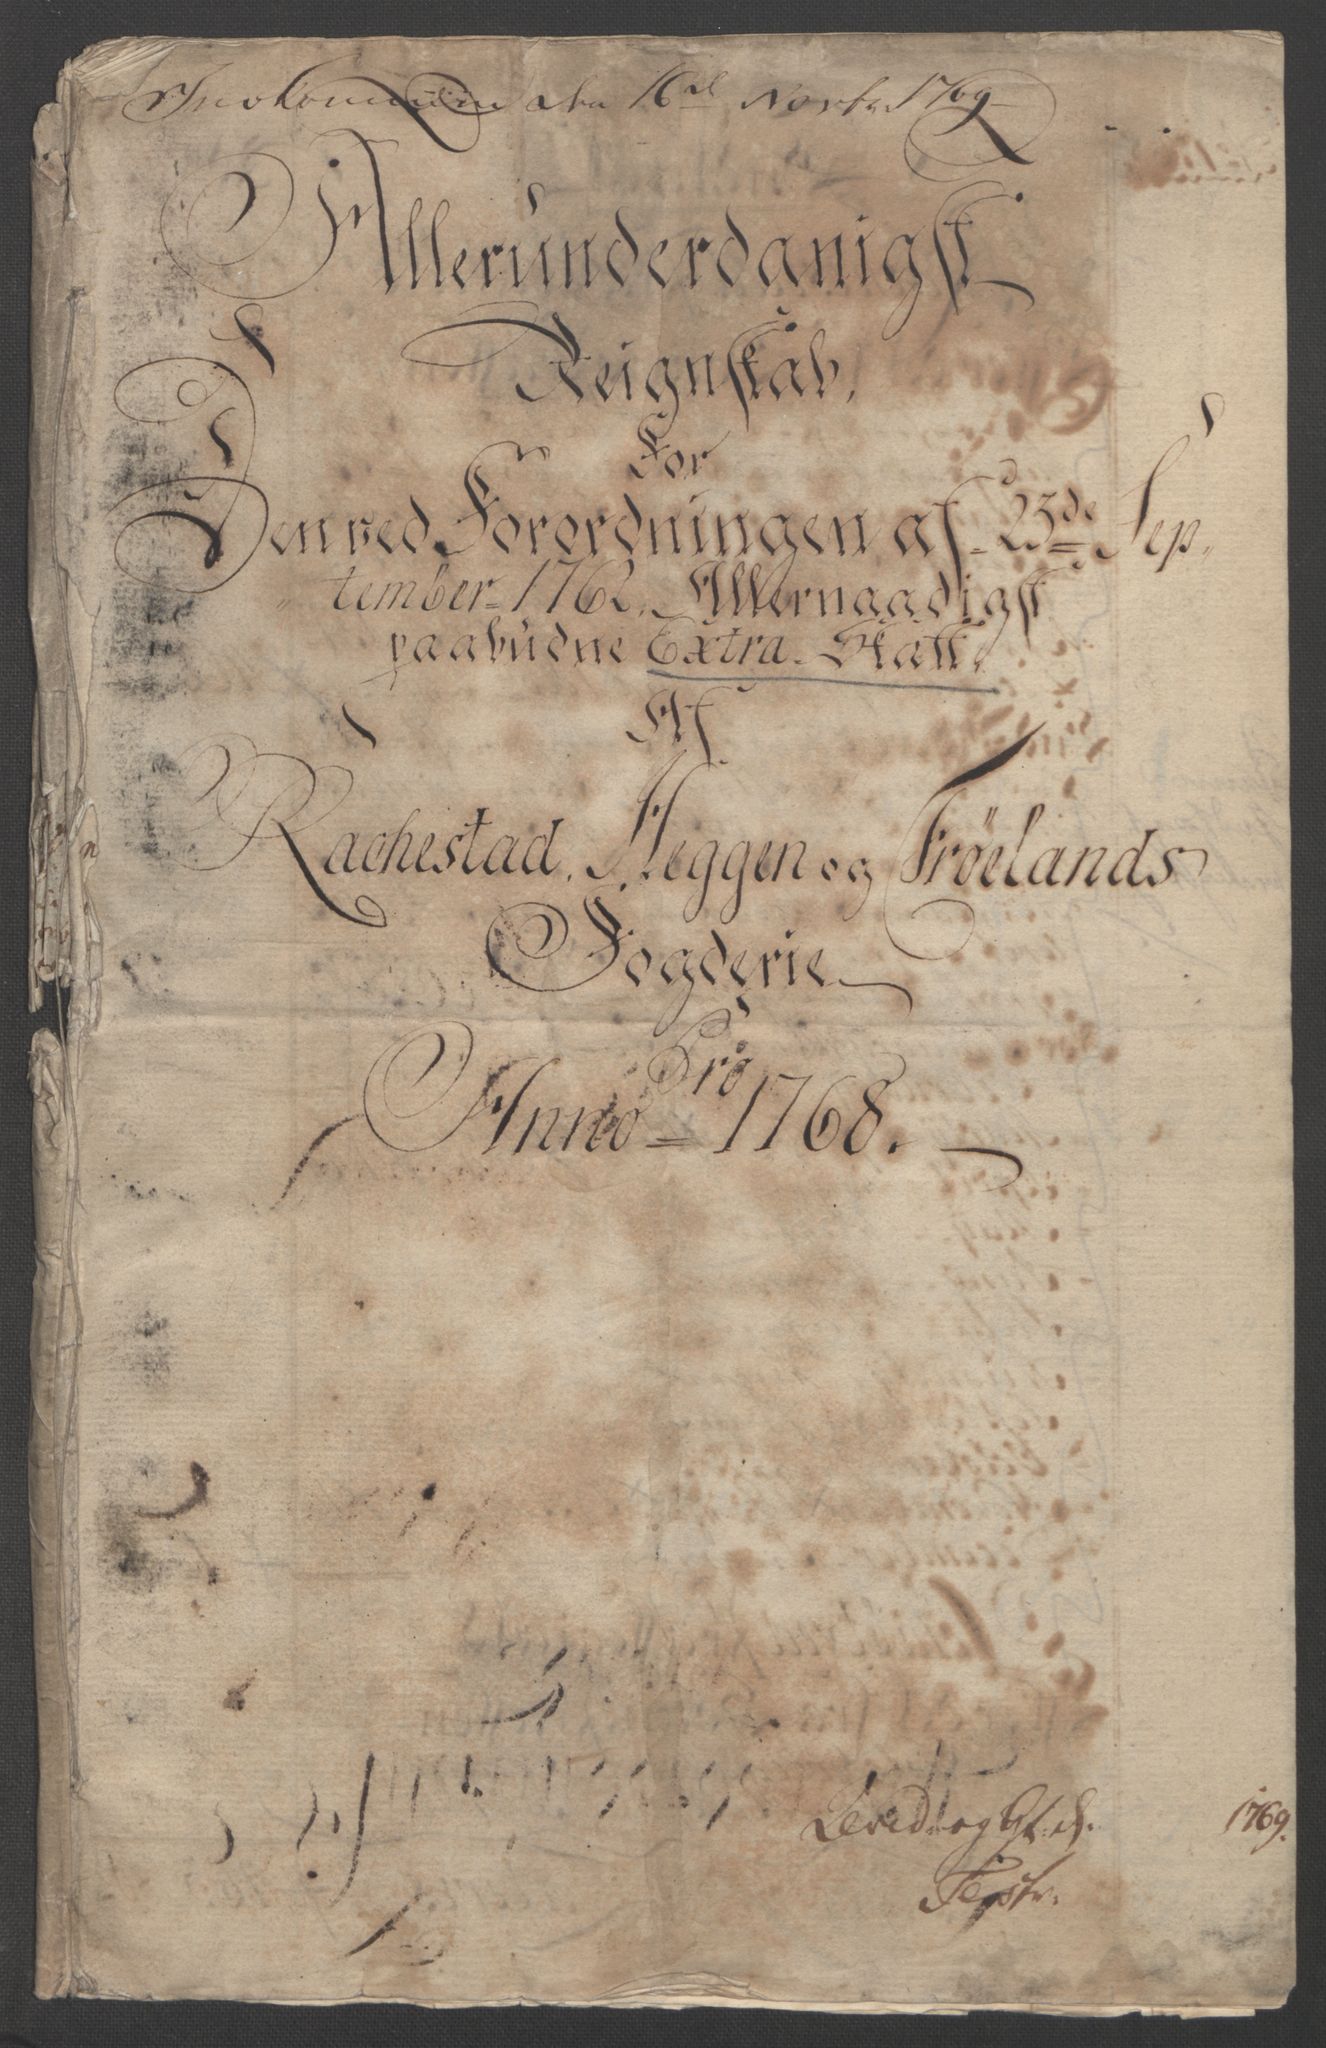 Inekommen den 16de Novbr 1769
Allerunderdanigst
Reignskab,
For
Den ved Forordningen af 23de Sep„
„tember 1762. Allernaadigst
paabudne Extra-Skatt.
Af
Rachestad, Heggen og Fröelands
Fogderie
Pro
Anno 1768.
1769.